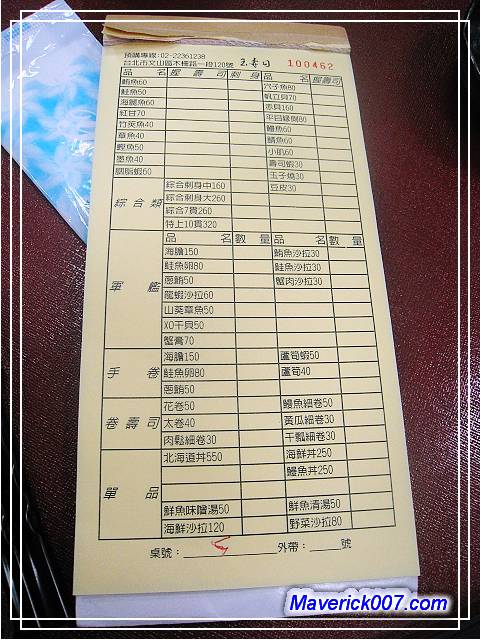 預購專線:02-22361238
台北市文山區木柵路一段120號 玉壽司 100462
品 名 握 壽 司 刺 身 品 名 握壽司
鮪魚60 穴子魚80
鮭魚50 帆立貝70
海鱺魚60 赤貝160
紅甘70 平目緣側80
竹筴魚40 鰻魚60
章魚40 鯖魚60
鰹魚50 小肌60
墨魚40 壽司蝦30
胭脂蝦60 玉子燒30
豆皮30
綜 合 類
綜合刺身中160
綜合刺身大260
綜合7貫260
特上10貫320
品 名 數 量 品 名 數 量
軍 艦
海膽150 鮪魚沙拉30
鮭魚卵80 鮭魚沙拉30
蔥鮪50 蟹肉沙拉30
龍蝦沙拉60
山葵章魚50
XO干貝50
蟹膏70
手 卷
海膽150 蘆筍蝦50
鮭魚卵80 蘆筍40
蔥鮪50
卷 壽 司
花卷50 鰻魚細卷50
太卷40 黃瓜細卷30
肉鬆細卷30 干瓢細卷30
單 品
北海道丼550 海鮮丼250
鰻魚丼250
鮮魚味噌湯50 鮮魚清湯50
海鮮沙拉120 野菜沙拉80
桌號: 5 外帶: 號
Maverick007.com